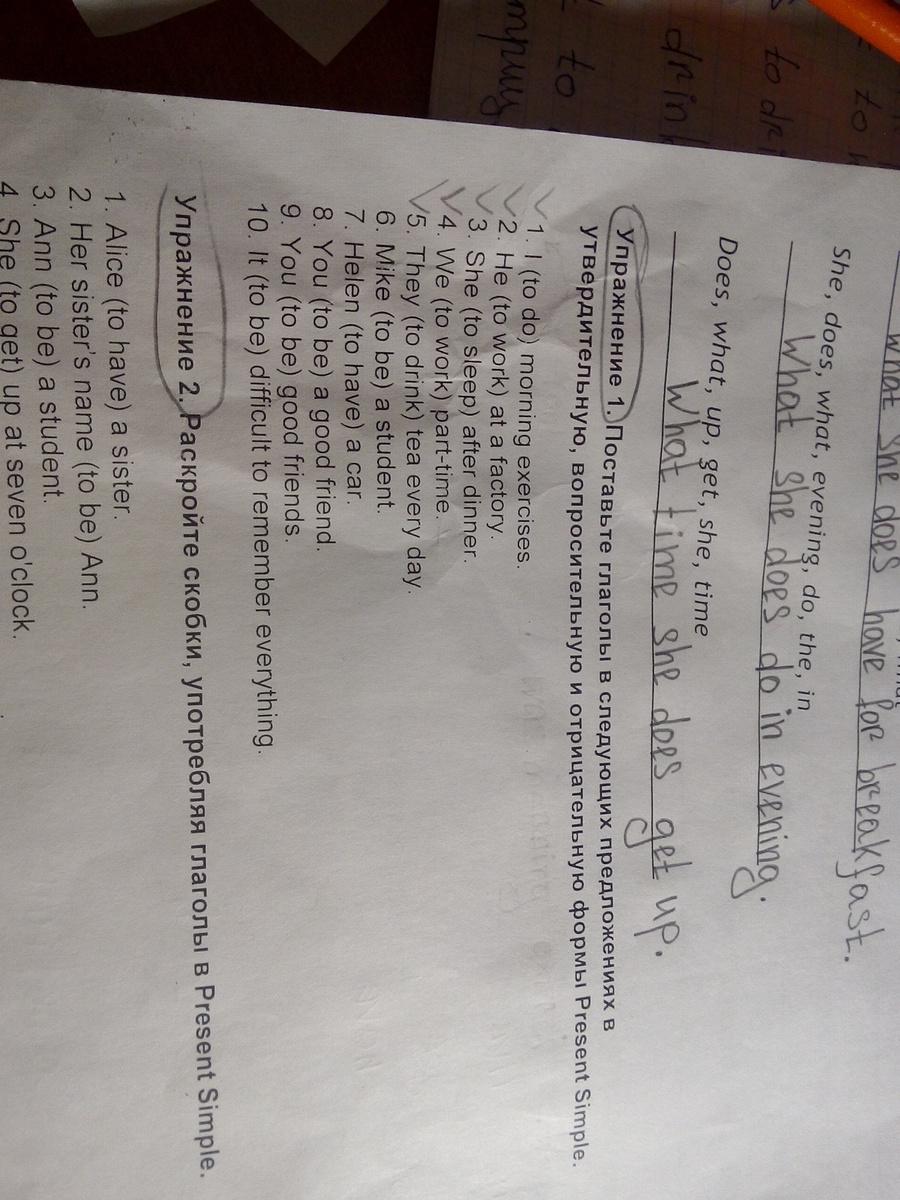 What she does have for breakfast.
She, does, what, evening, do, the, in
What she does do in evening.
Does, what, up, get, she, time
What time she does get up.
Упражнение 1. Поставьте глаголы в следующих предложениях в
утвердительную, вопросительную и отрицательную формы Present Simple.
1. I (to do) morning exercises.
2. He (to work) at a factory.
3. She (to sleep) after dinner.
4. We (to work) part-time.
5. They (to drink) tea every day.
6. Mike (to be) a student.
7. Helen (to have) a car.
8. You (to be) a good friend.
9. You (to be) good friends.
10. It (to be) difficult to remember everything.
Упражнение 2. Раскройте скобки, употребляя глаголы в Present Simple.
1. Alice (to have) a sister.
2. Her sister's name (to be) Ann.
3. Ann (to be) a student.
4 She (to get) up at seven o'clock.
to
drink
to